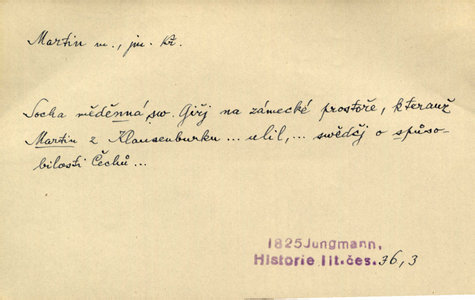 Martin m., jm. kř.
Socha měděnná sw. Giřj na zámecké prostoře, kterauž
Martin z Klausenburku ... ulil, ... swědčj o způso-
bilosti Čechů ...
1825 Jungmann,
Historie lit. čes. 36, 3